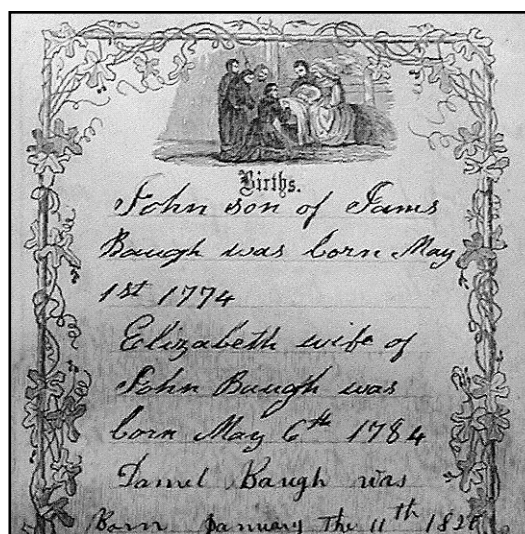 Births.
John son of Jams
Baugh was born May
1st 1774
Elizabeth wife of
John Baugh was
born May 6th 1784
Daniel Baugh was
Born January the 11th